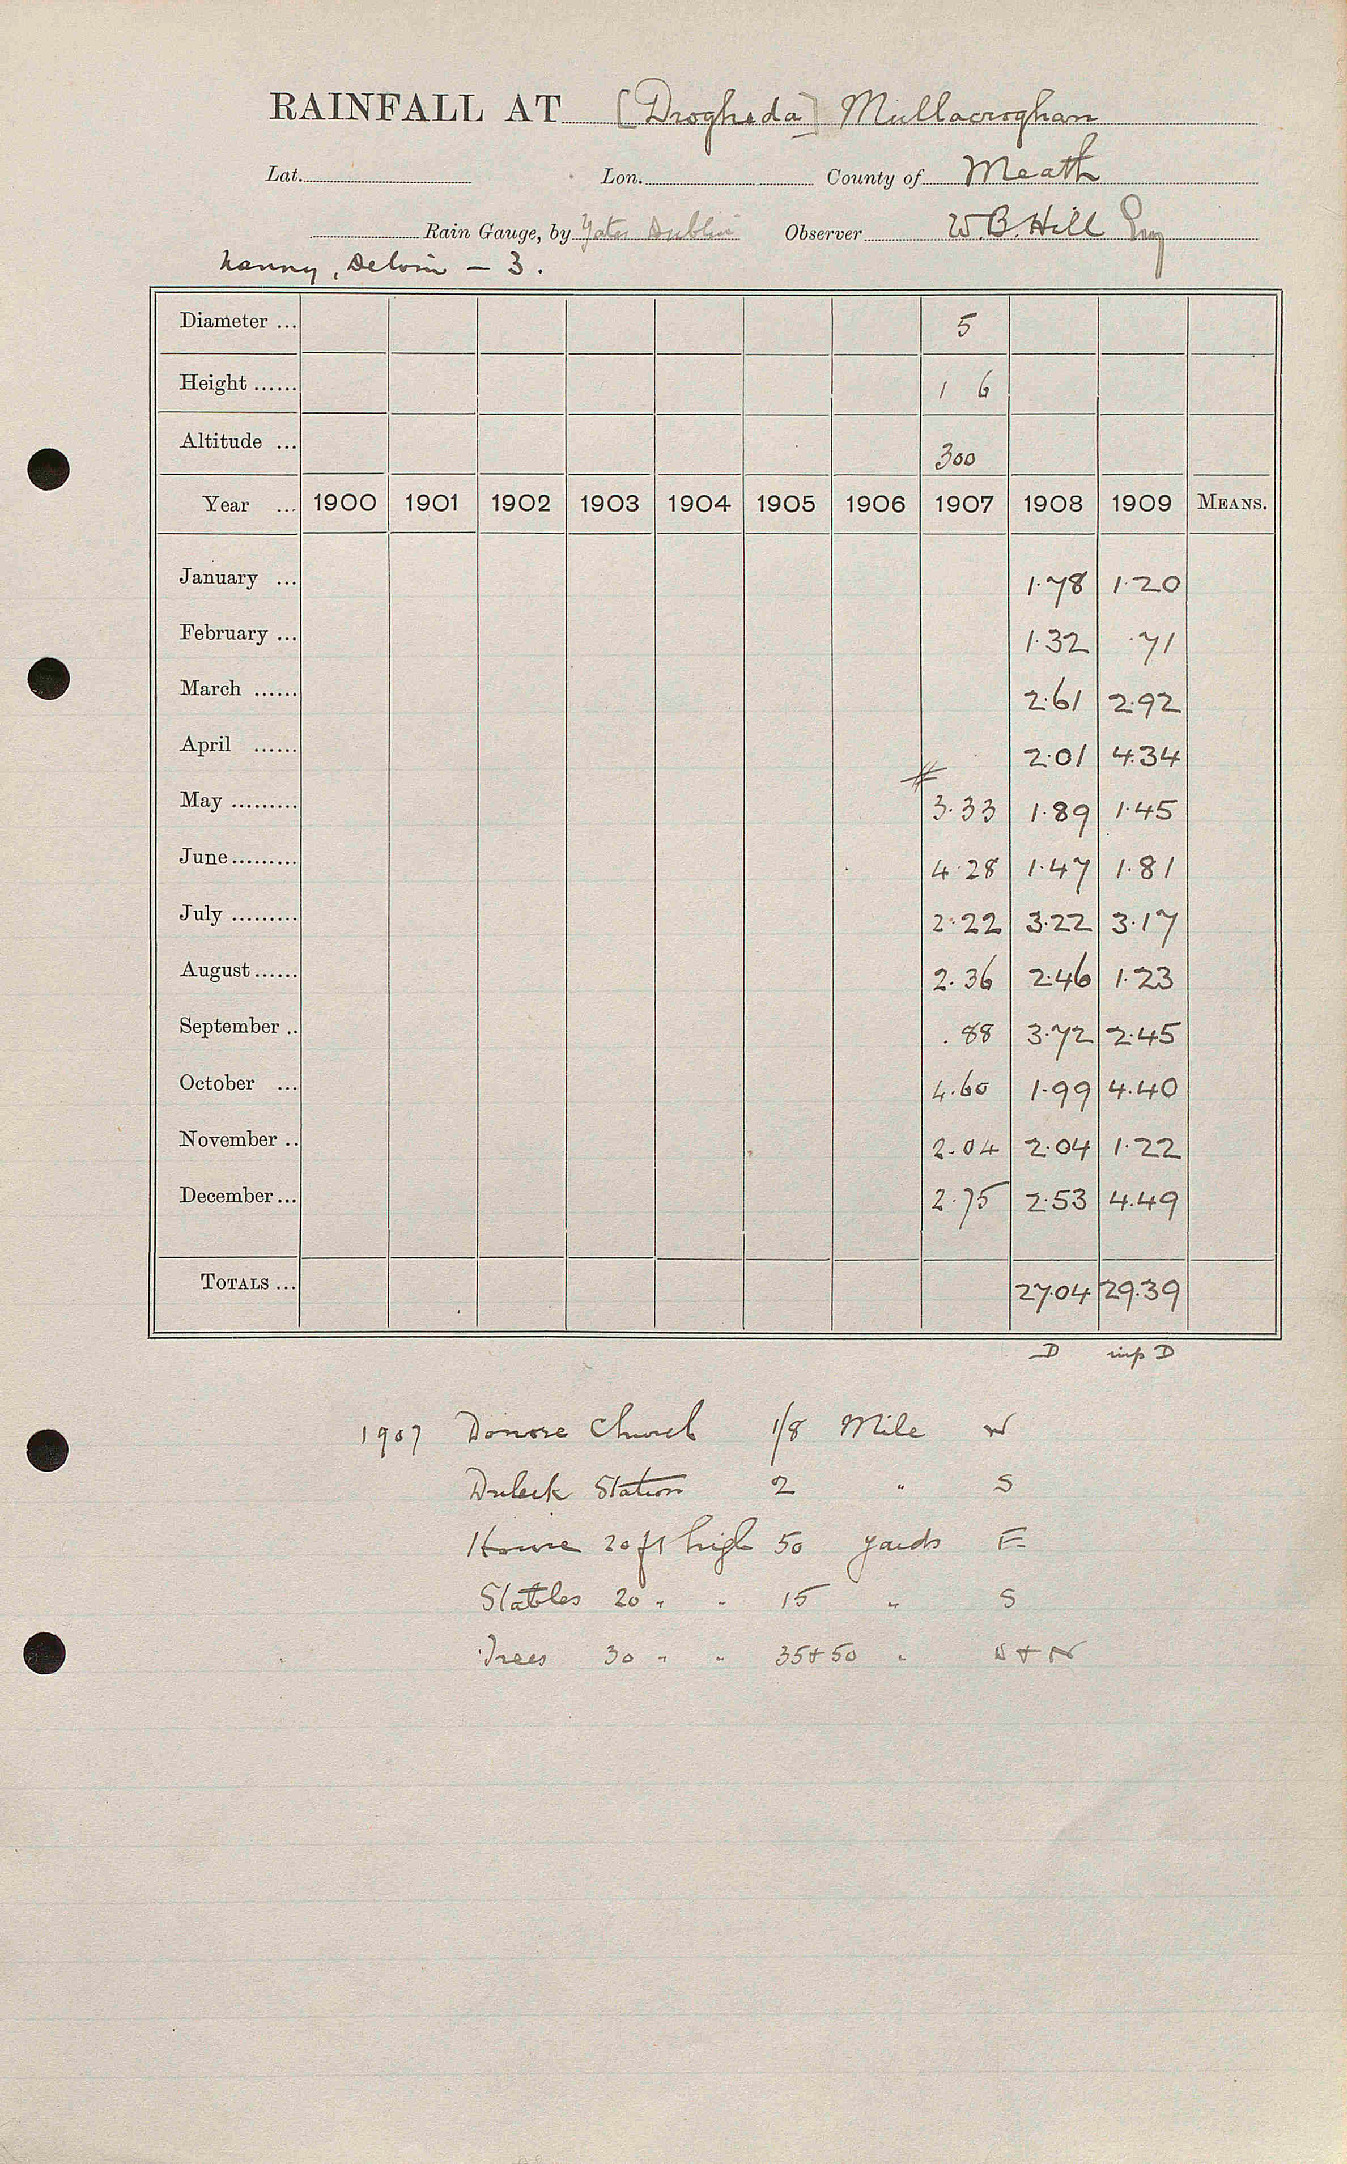 RAINFALL AT [Drogheda] Mullacroghan
Lat. Lon. County of Meath
Rain Gauge, by Yates Dublin Observer W.B. Hill Esq
Nanny, Delvin — 3.
Diameter ... 5
Height ...... 1 6
Altitude ... 300
Year ... 1900 1901 1902 1903 1904 1905 1906 1907 1908 1909 MEANS.
January ... 1.78 1.20
February ... 1.32 .71
March ...... 2.61 2.92
April ...... 2.01 4.34
May ......... # 3.33 1.89 1.45
June ......... 4.28 1.47 1.81
July ......... 2.22 3.22 3.17
August ...... 2.36 2.46 1.23
September .. .88 3.72 2.45
October ... 4.60 1.99 4.40
November .. 2.04 2.04 1.22
December ... 2.75 2.53 4.49
TOTALS ... 27.04 29.39
D D
1907 Donore Church 1/8 Mile N
Duleek Station 2 " S
House 20 ft high 50 yards E
Stables 20 " " 15 " S
Trees 30 " " 35+50 " + N